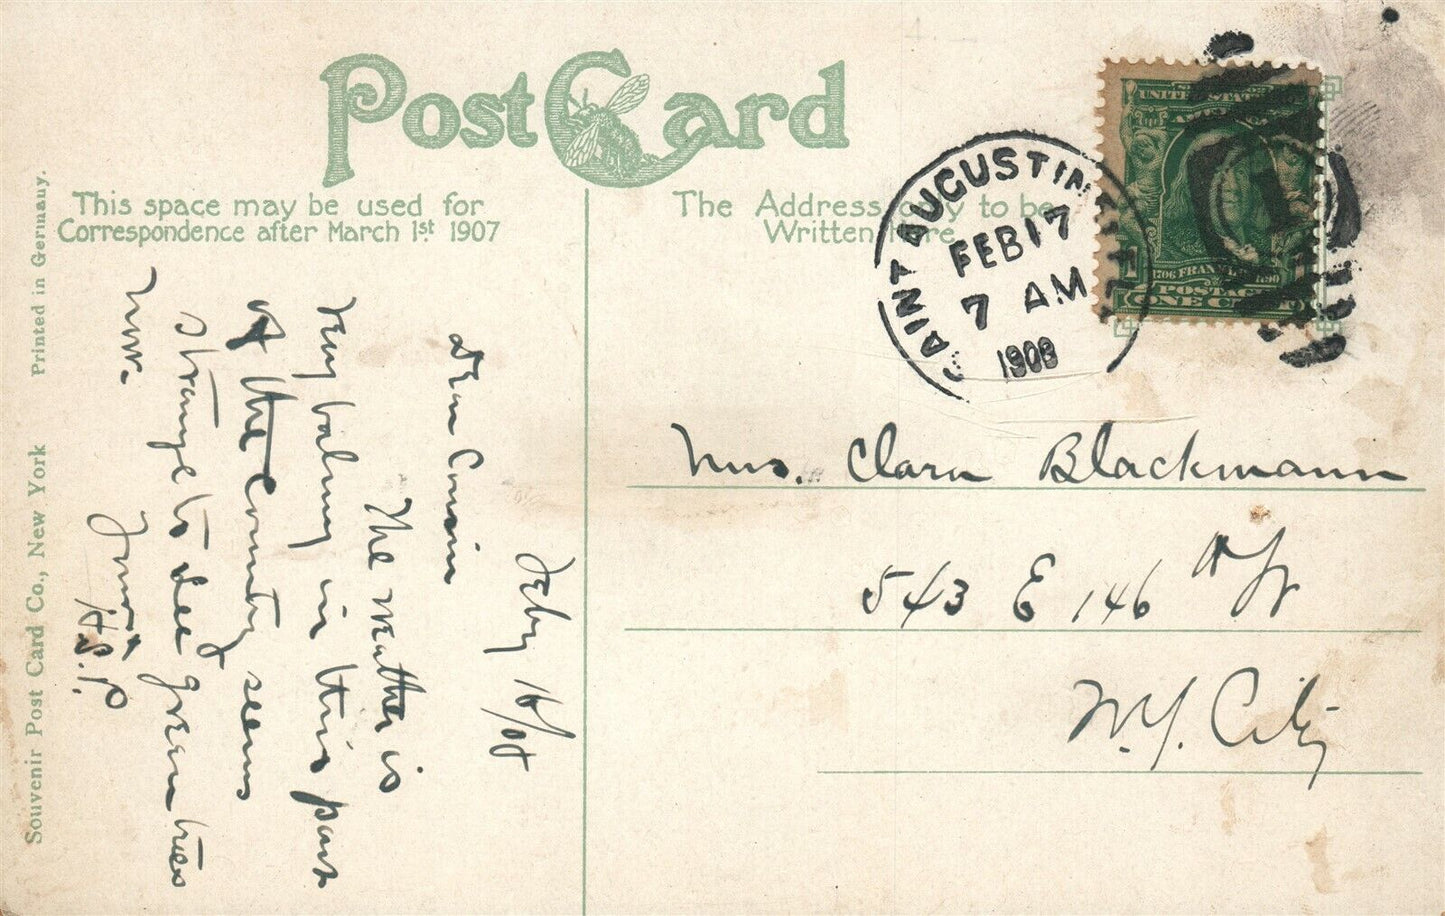 Post Card
This space may be used for
Correspondence after March 1st 1907
The Address only to be
Written here
SAINT AUGUSTINE, FLA.
FEB 17
7 AM
1908
UNITED STATES OF
AMERICA
1706 FRANKLIN 1790
POSTAGE
1 ONE CENT 1
1
Feby 16/08
Dear Cousin
The weather is
very balmy in this part
of the Country seems
strange to see green trees
now.
Yours
H.S.P.
Mrs. Clara Blackmann
543 E 146th St
N.Y. City
Souvenir Post Card Co., New York Printed in Germany.